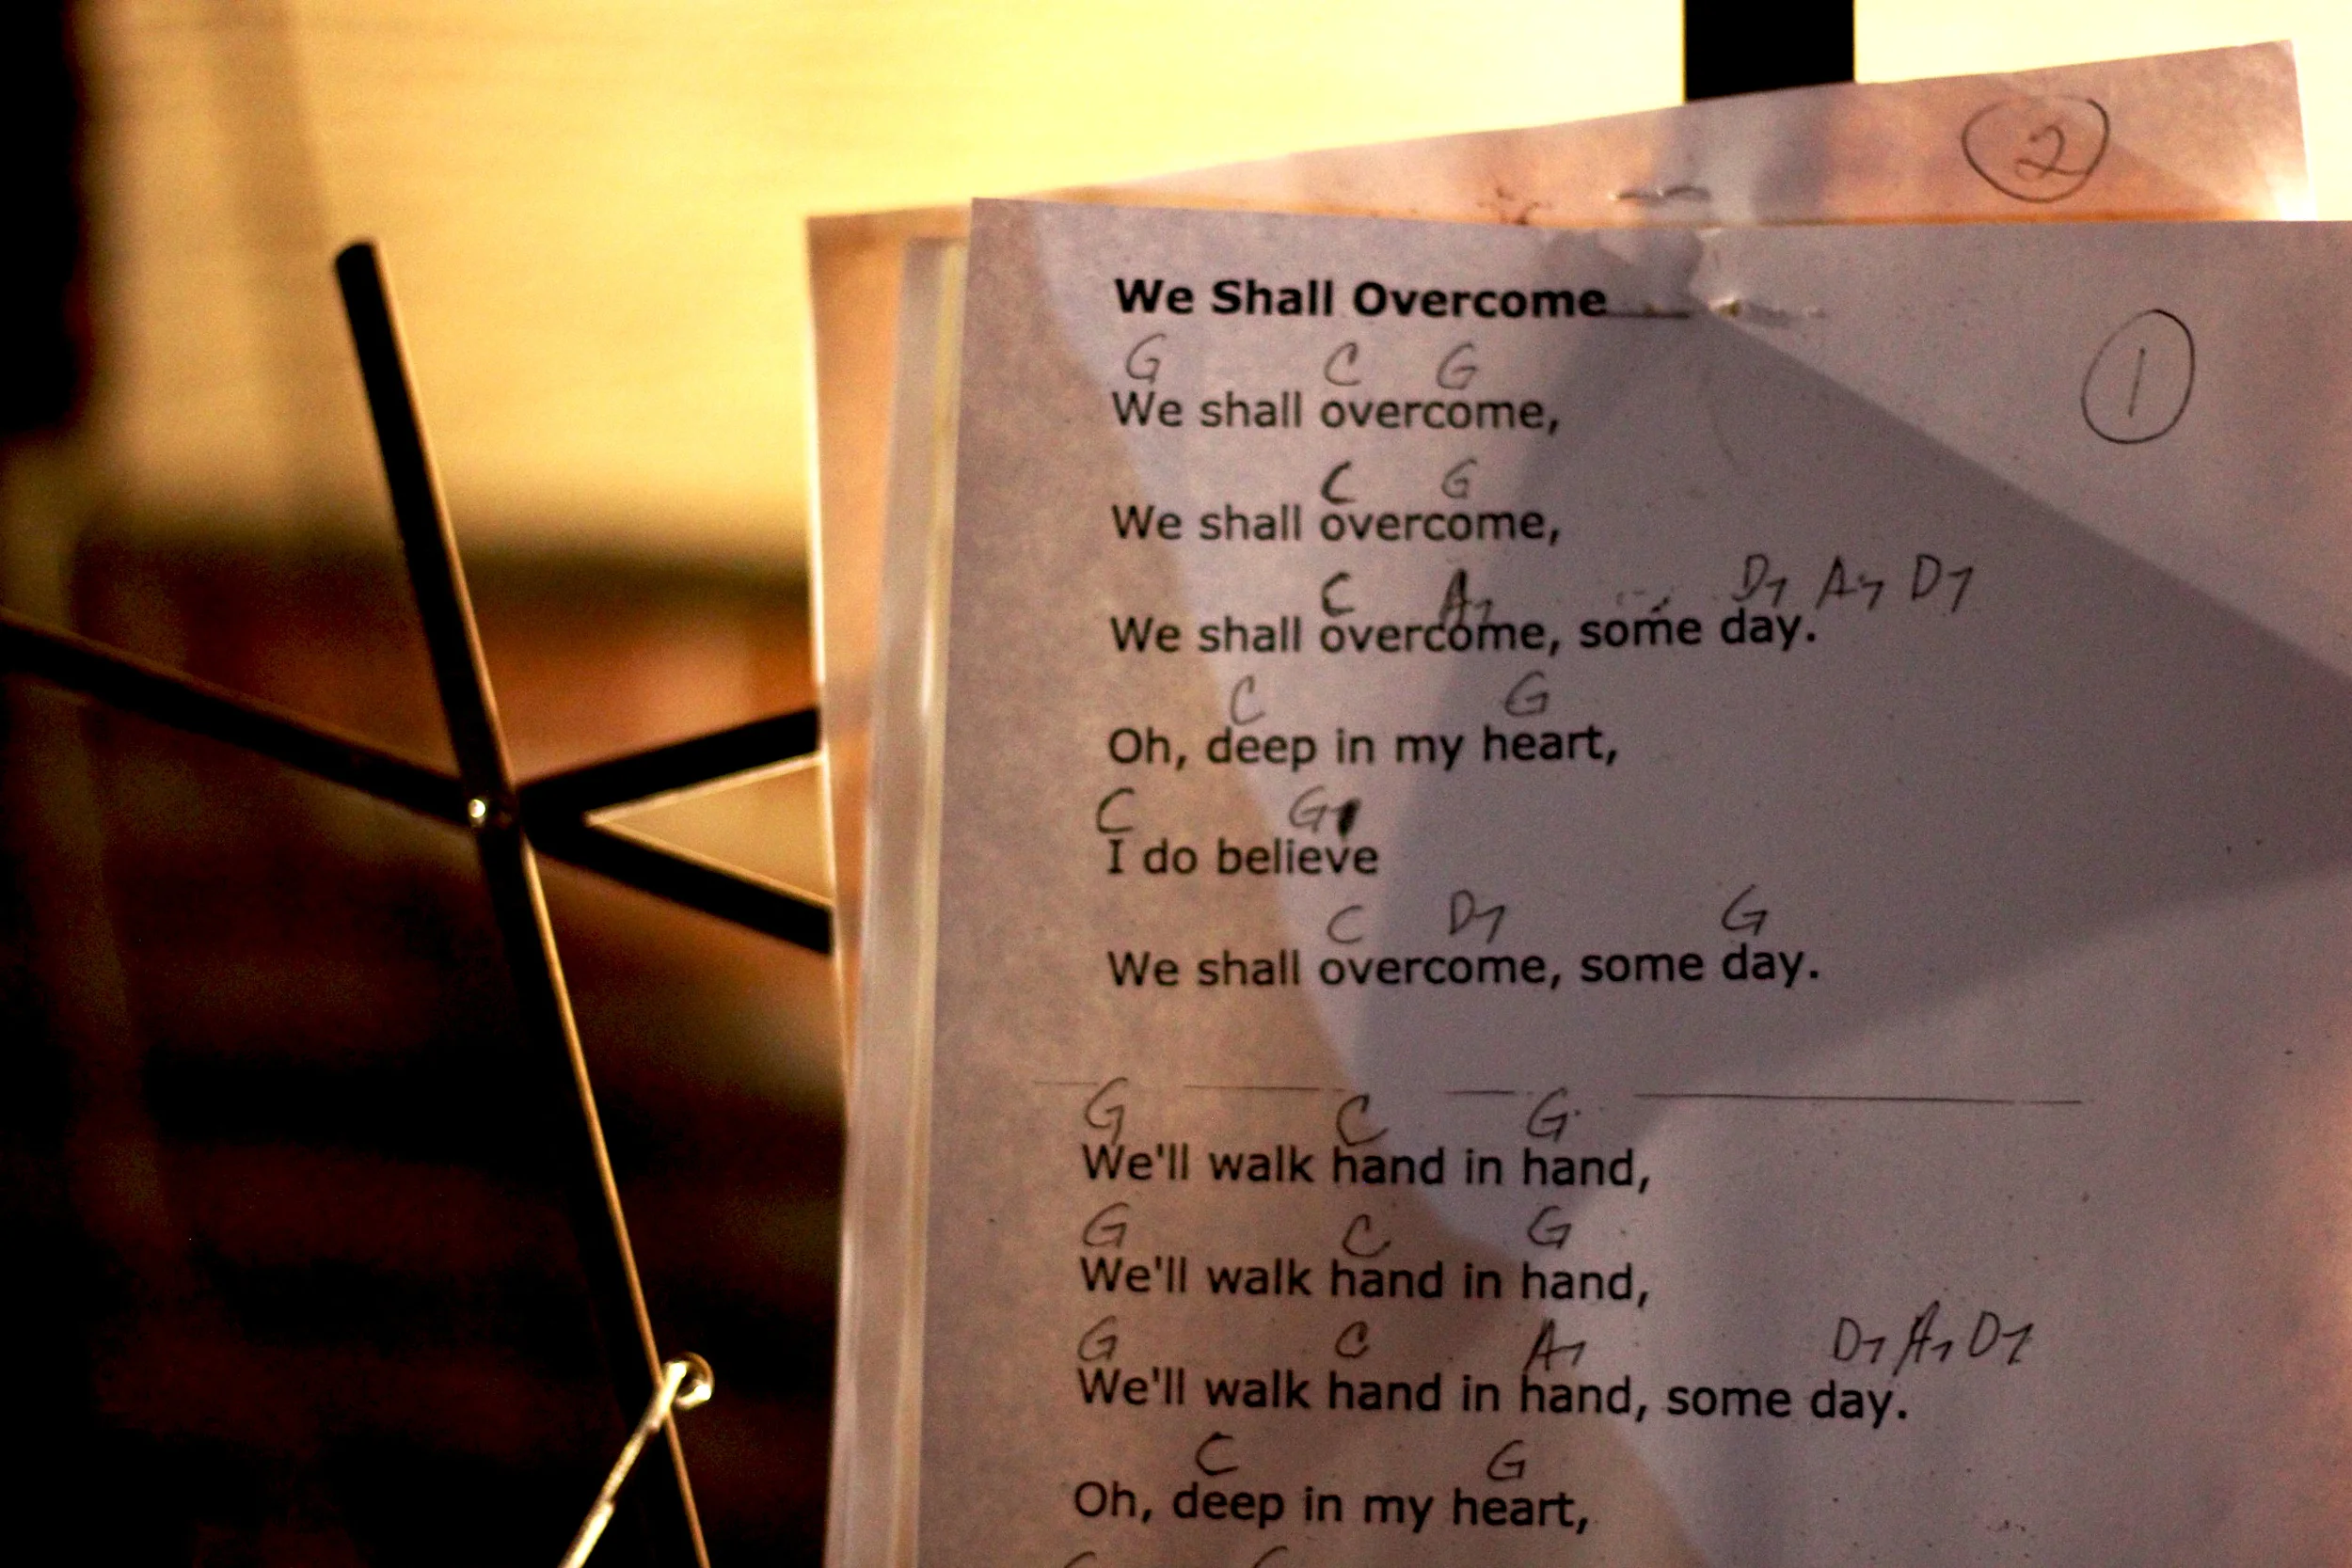 2
We Shall Overcome
1
G C G
We shall overcome,
C G
We shall overcome,
C A7 D7 A7 D7
We shall overcome, some day.
C G
Oh, deep in my heart,
C G
I do believe
C D7 G
We shall overcome, some day.
G C G
We'll walk hand in hand,
G C G
We'll walk hand in hand,
G C A7 D7 A7 D7
We'll walk hand in hand, some day.
C G
Oh, deep in my heart,